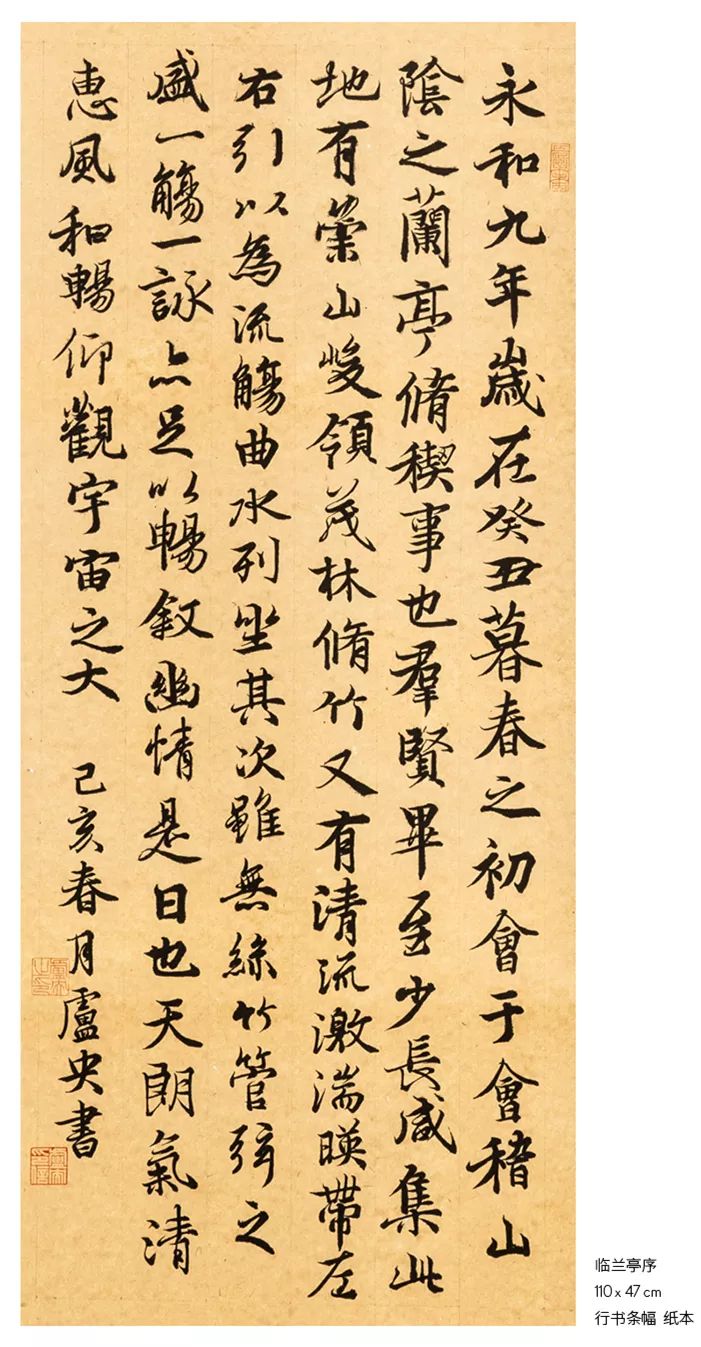 永和九年歲在癸丑暮春之初會于會稽山
陰之蘭亭脩稧事也羣賢畢至少長咸集此
地有崇山峻領茂林脩竹又有清流激湍暎帶左
右引以為流觴曲水列坐其次雖無絲竹管弦之
盛一觴一詠亦足以暢敘幽情是日也天朗氣清
惠風和暢仰觀宇宙之大 己亥春月盧央書
临兰亭序
110 x 47 cm
行书条幅 纸本